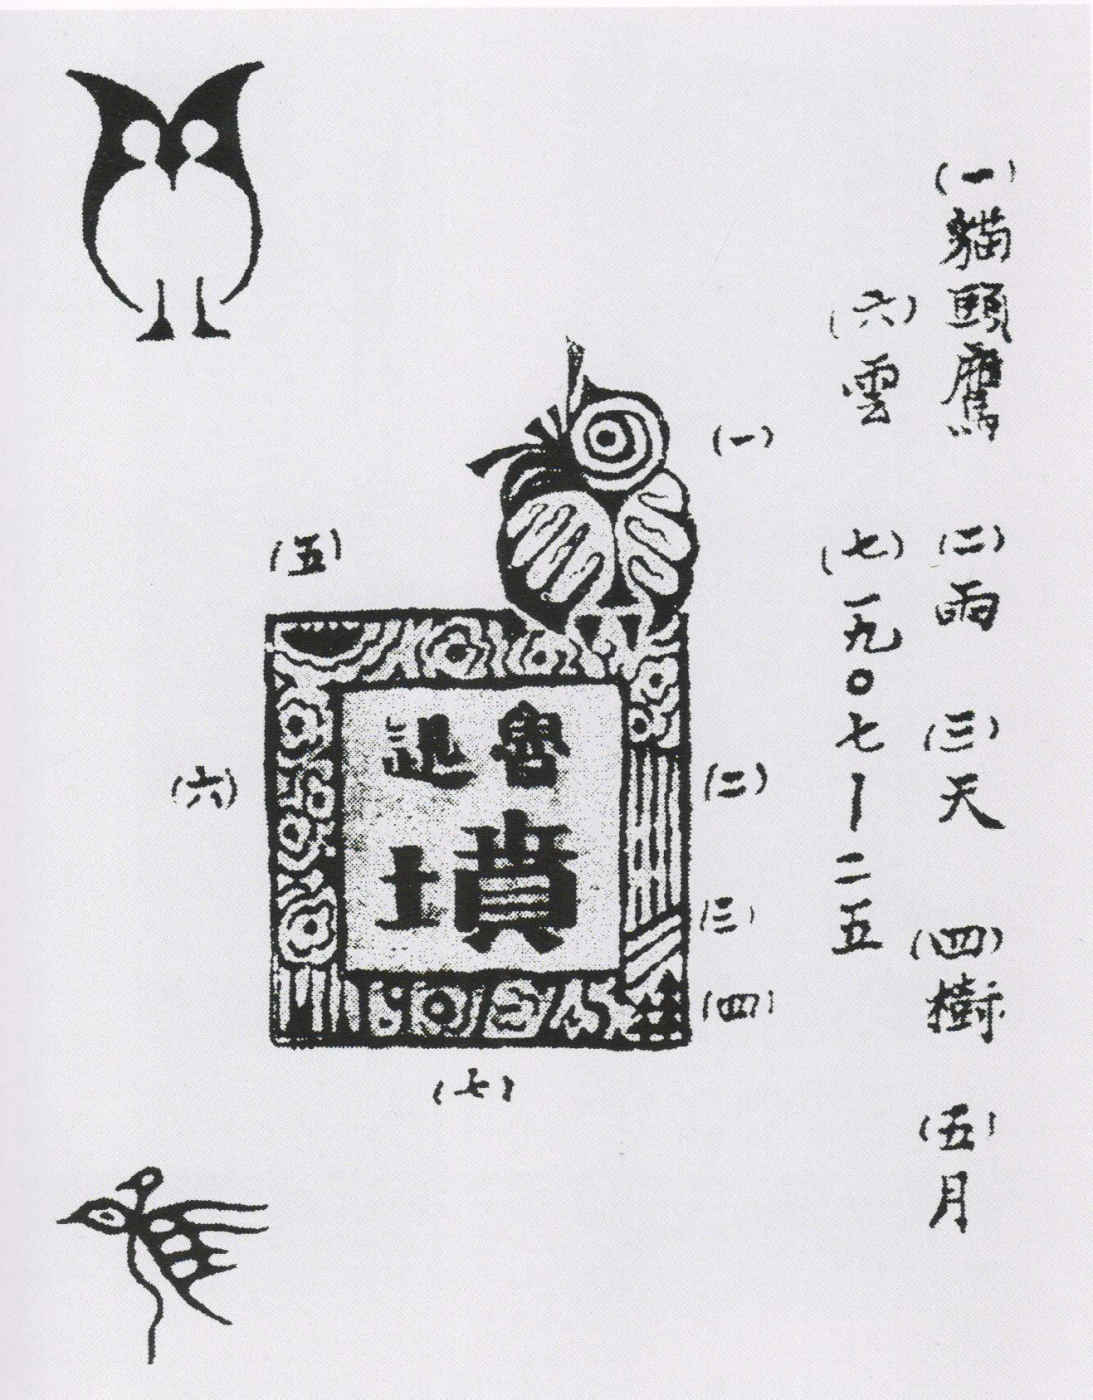 (一)貓頭鷹 (二)雨 (三)天 (四)樹 (五)月
(六)雲 (七)一九〇七—二五
(一)
(二)
(三)
(四)
(五)
(六)
(七)
魯迅
墳